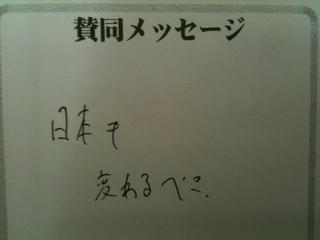 賛同メッセージ
日本も
変わるべき.